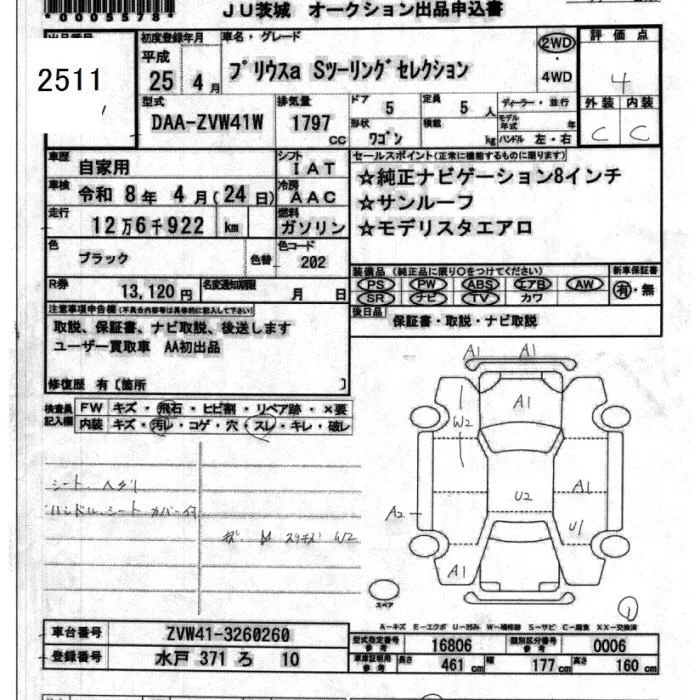 *0005578*
JU茨城 オークション出品申込書
2511
初度登録年月
平成
25年4月
車名・グレード
プリウスa Sツーリングセレクション
2WD
・
4WD
評価点
4
外装 内装
C C
型式
DAA-ZVW41W
排気量
1797
CC
ドア 5
定員 5 人
ディーラー・並行
モデル年式 年
形状
ワゴン
積載 kg
ハンドル 左・右
車歴
自家用
シフト
IAT
車検
令和 8年 4月(24日)
冷房
AAC
走行
12万6千922 km
燃料
ガソリン
色
ブラック
色替
色コード
202
R券
13,120円
名変通知期限
月 日
セールスポイント(正常に機能するものに限ります)
☆純正ナビゲーション8インチ
☆サンルーフ
☆モデリスタエアロ
装備品 (純正品に限り○をつけてください)
PS PW ABS エアB AW
SR ナビ TV カワ
新車保証書
有・無
後日品
保証書・取説・ナビ取説
注意事項申告欄(不具合内容等は具体的に記入して下さい)
取説、保証書、ナビ取説、後送します
ユーザー買取車 AA初出品
修復歴 有〔箇所 〕
検査員
記入欄
FW キズ・飛石・ヒビ割・リペア跡・×要
内装 キズ・汚レ・コゲ・穴・スレ・キレ・破レ
シート ヘタリ
ハンドル、シート カバー付
W2
A1 A1
A1
W2
U2
A1
A2
U1
A1
スペア
1
A-キズ E-エクボ U-凹み W-補修跡 S-サビ C-腐食 XX-交換済
車台番号
ZVW41-3260260
登録番号
水戸 371 ろ 10
型式指定番号
参考
16806
類別区分番号
参考
0006
車庫証明用
参考
長さ 461 cm
幅 177 cm
高さ 160 cm